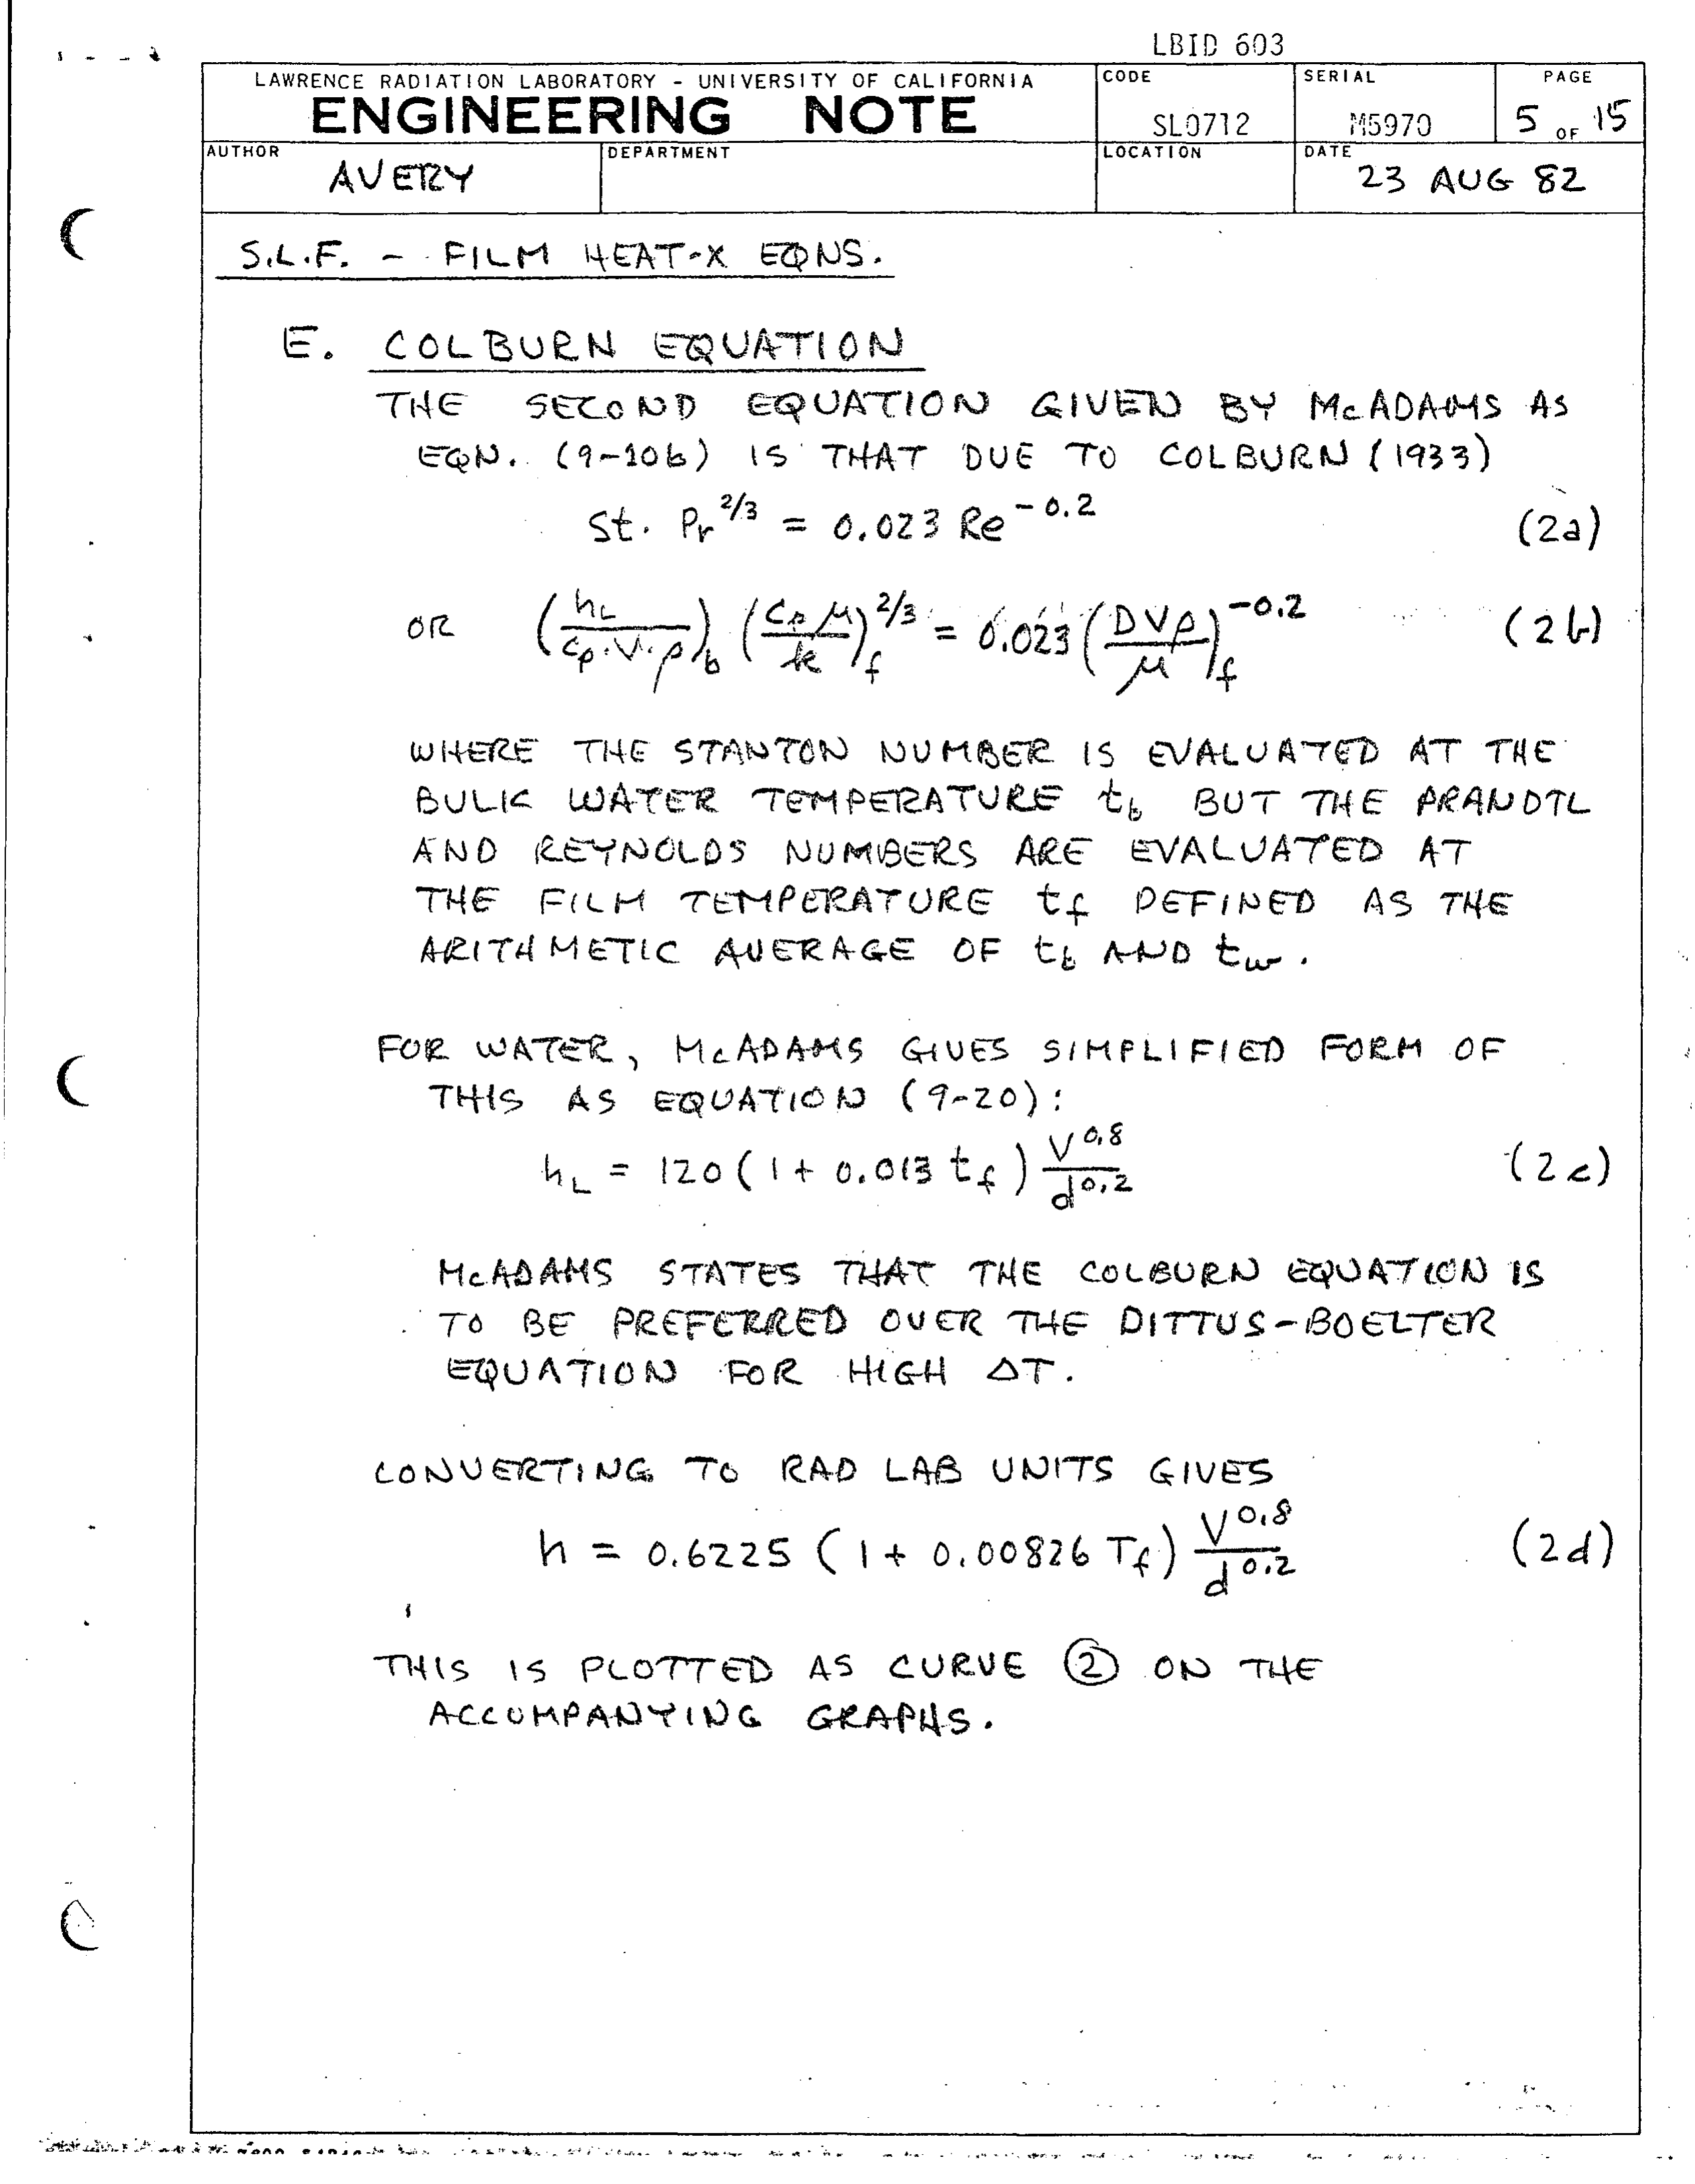 LBID 603
LAWRENCE RADIATION LABORATORY - UNIVERSITY OF CALIFORNIA
ENGINEERING NOTE
CODE
SL0712
SERIAL
M5970
PAGE
5 OF 15
AUTHOR
AVERY
DEPARTMENT
LOCATION
DATE
23 AUG 82
S.L.F. - FILM HEAT-X EQNS.
E. COLBURN EQUATION
THE SECOND EQUATION GIVEN BY McADAMS AS
EQN. (9-10b) IS THAT DUE TO COLBURN (1933)
St. Pr^2/3 = 0.023 Re^-0.2 (2a)
OR (h_L / c_p·V·ρ)_b (c_p μ / k)_f^2/3 = 0.023 (DVρ / μ)_f^-0.2 (2b)
WHERE THE STANTON NUMBER IS EVALUATED AT THE
BULK WATER TEMPERATURE t_b BUT THE PRANDTL
AND REYNOLDS NUMBERS ARE EVALUATED AT
THE FILM TEMPERATURE t_f DEFINED AS THE
ARITHMETIC AVERAGE OF t_b AND t_w.
FOR WATER, McADAMS GIVES SIMPLIFIED FORM OF
THIS AS EQUATION (9-20):
h_L = 120 (1 + 0.013 t_f) V^0.8 / d^0.2 (2c)
McADAMS STATES THAT THE COLBURN EQUATION IS
TO BE PREFERRED OVER THE DITTUS-BOELTER
EQUATION FOR HIGH ΔT.
CONVERTING TO RAD LAB UNITS GIVES
h = 0.6225 (1 + 0.00826 T_f) V^0.8 / d^0.2 (2d)
THIS IS PLOTTED AS CURVE ② ON THE
ACCOMPANYING GRAPHS.